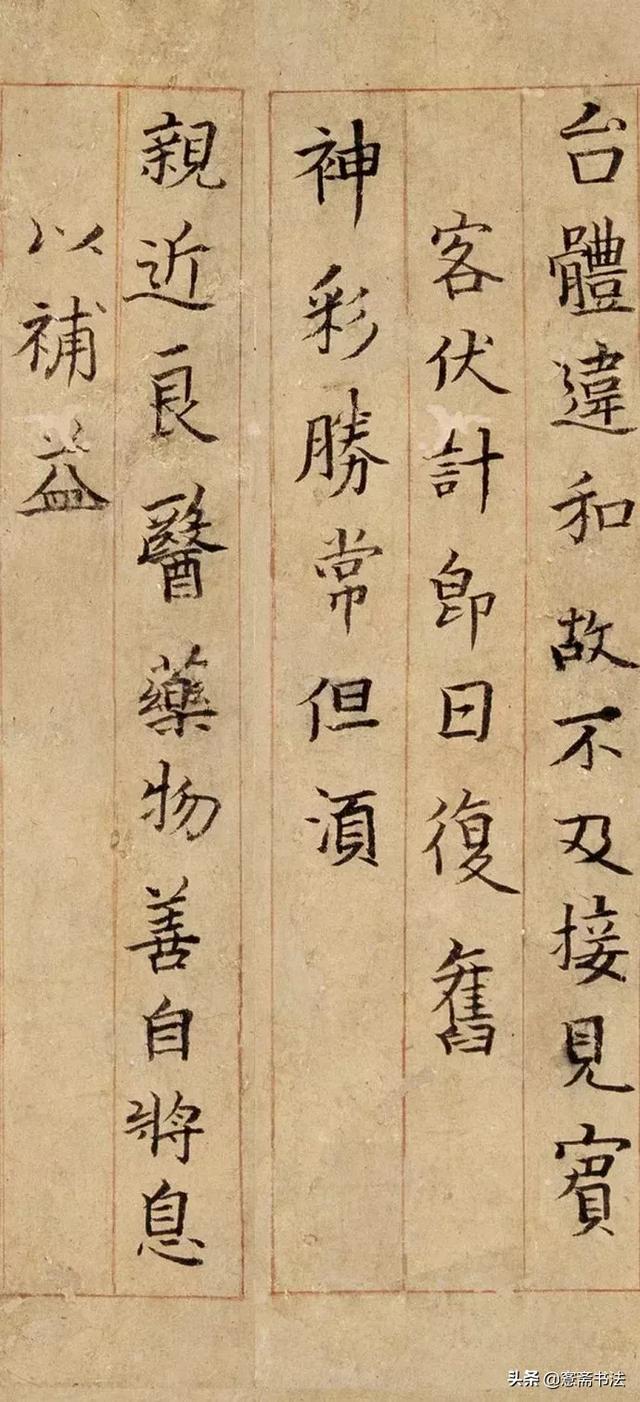 台體違和故不及接見賓
客伏計即日復舊
神彩勝常但須
親近良醫藥物善自將息
以補益
头条 @窓斋书法